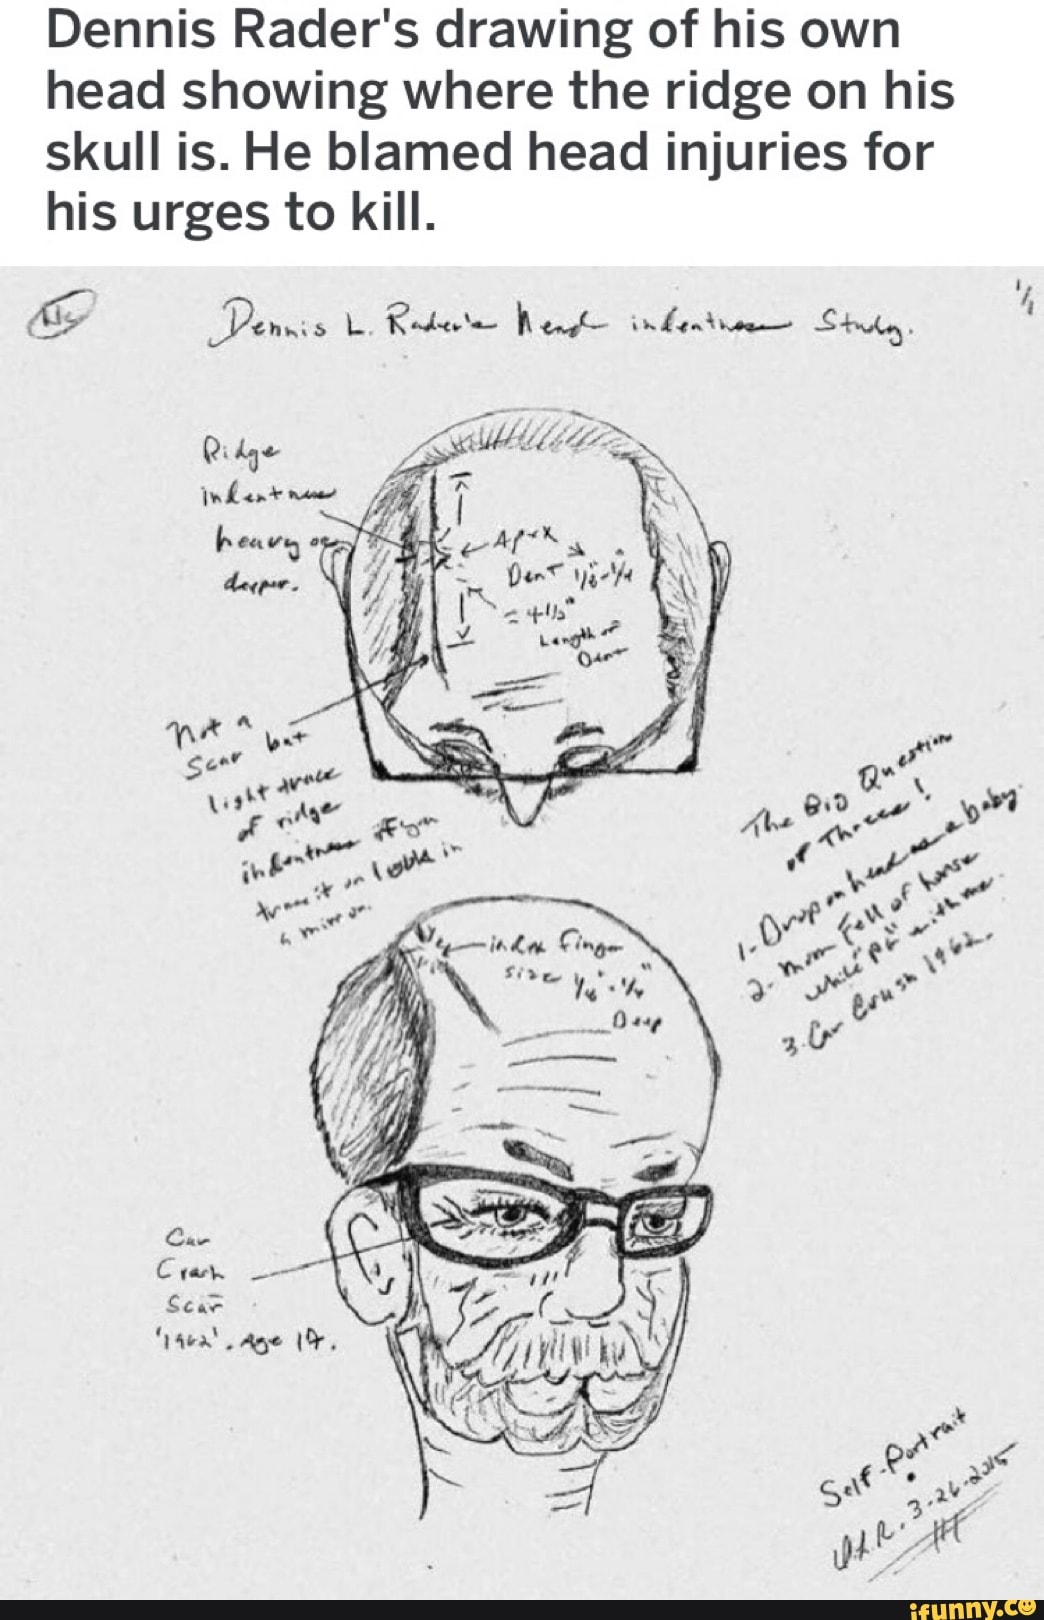 Dennis Rader's drawing of his own
head showing where the ridge on his
skull is. He blamed head injuries for
his urges to kill.
1/1
Dennis L. Rader's Head indentness Study.
Ridge
indentness
heavy or
deeper.
Apex
Dent 1/8"-1/4"
= 4-1/2"
Length of
Dent
Not a
Scar but
light trace
of ridge
indentness if you
trace it on look in
a mirror.
The Big Question
of Three!
1- Drop on head as a baby.
2- Mom Fell of horse
while "PG" with me.
3. Car Crash 1962.
index finger
size 1/8"-1/4"
Deep
Car
Crash
Scar
'1962'. Age 17.
Self-Portrait
D.L.R. 3-26-2015
ifunny.co